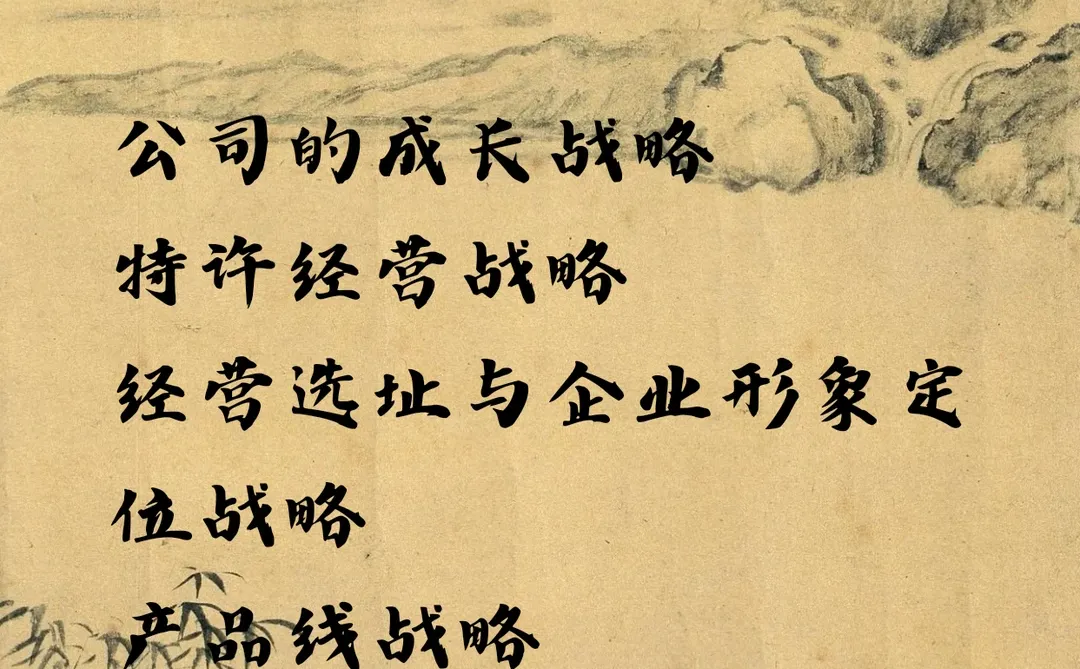 公司的成长战略
特许经营战略
经营选址与企业形象定
位战略
产品线战略